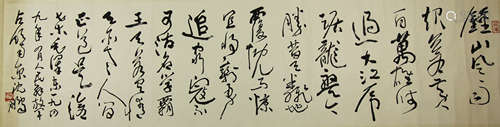 鐘山風雨
起蒼黃
百萬雄師
過大江虎
踞龍盤今
勝昔天翻地
覆慨而慷
宜將剩勇
追窮寇不
可沽名學霸
王天若有情
天亦老人間
正道是滄
桑毛澤東